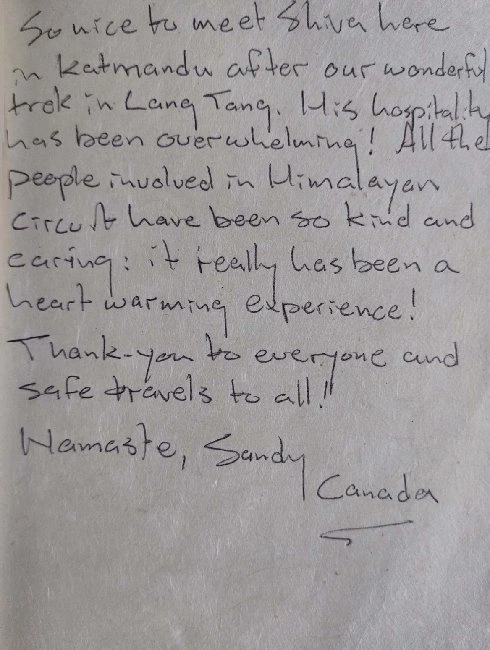 So nice to meet Shiva here
in Katmandu after our wonderful
trek in Lang Tang. His hospitality
has been overwhelming! All the
people involved in Himalayan
Circuit have been so kind and
caring: it really has been a
heart warming experience!
Thank-you to everyone and
safe travels to all!
Namaste, Sandy
Canada